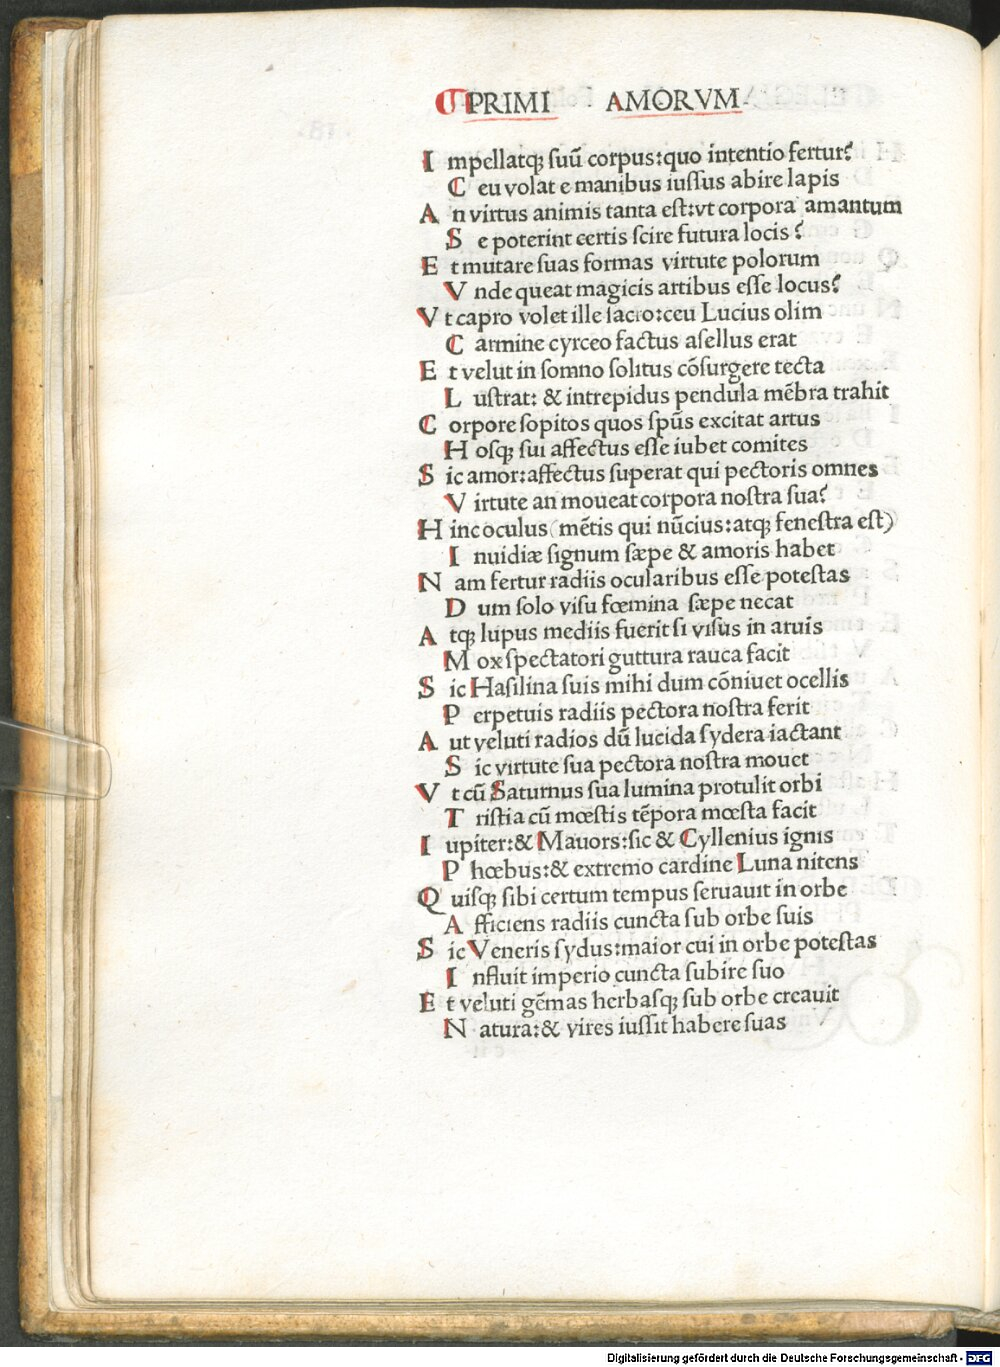 PRIMI AMORVM
I mpellatqꝫ ſuū corpus:quo intentio fertur?
C eu volat e manibus iuſſus abire lapis
A n virtus animis tanta eſt:vt corpora amantum
S e poterint certis ſcire futura locis?
E t mutare ſuas formas virtute polorum
V nde queat magicis artibus eſſe locus?
V t capro volet ille ſacro:ceu Lucius olim
C armine cyrceo factus aſellus erat
E t velut in ſomno ſolitus cōſurgere tecta
L uſtrat: & intrepidus pendula mēbra trahit
C orpore ſopitos quos ſpūs excitat artus
H oſqꝫ ſui affectus eſſe iubet comites
S ic amor:affectus ſuperat qui pectoris omnes
V irtute an moueat corpora noſtra ſua?
H inc oculus (mētis qui nūcius:atqꝫ feneſtra eſt)
I nuidiæ ſignum ſæpe & amoris habet
N am fertur radiis ocularibus eſſe poteſtas
D um ſolo viſu fœmina ſæpe necat
A tqꝫ lupus mediis fuerit ſi viſus in aruis
M ox ſpectatori guttura rauca facit
S ic Haſilina ſuis mihi dum cōniuet ocellis
P erpetuis radiis pectora noſtra ferit
A ut veluti radios dū lucida ſydera iactant
S ic virtute ſua pectora noſtra mouet
V t cū Saturnus ſua lumina protulit orbi
T riſtia cū mœſtis tēpora mœſta facit
I upiter:& Mauors:ſic & Cyllenius ignis
P hœbus:& extremo cardine Luna nitens
Q uiſqꝫ ſibi certum tempus ſeruauit in orbe
A fficiens radiis cuncta ſub orbe ſuis
S ic Veneris ſydus:maior cui in orbe poteſtas
I nfluit imperio cuncta ſubire ſuo
E t veluti gēmas herbaſqꝫ ſub orbe creauit
N atura:& vires iuſſit habere ſuas
Digitalisierung gefördert durch die Deutsche Forschungsgemeinschaft - DFG